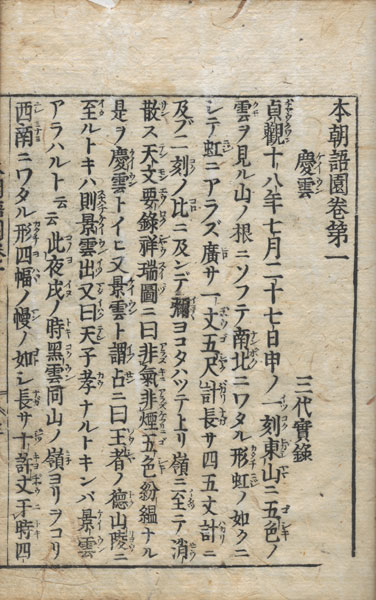 本朝語園卷第一
慶雲 三代實錄
貞觀十八年七月二十七日申ノ一刻東山ニ五色ノ
雲ヲ見ル山ノ根ニソフテ南北ニワタル形虹ノ如クニ
シテ虹ニアラズ廣サ一丈五尺計長サ四五丈計ニ
及ブ二刻ノ比ニ及ンデ彌ヨコタハツテ上リ嶺ニ至テ消
散ス天文要錄祥瑞圖ニ曰非氣非煙五色紛縕ナル
是ヲ慶雲トイヒ又景雲ト謂占ニ曰王者ノ德山陵ニ
至ルトキハ則景雲出又曰天子孝ナルトキンバ景雲
アラハルト云云此夜戌ノ時黑雲同山ノ嶺ヨリヲコリ
西南ニワタル形四幅ノ幔ノ如シ長サ十許丈于時四